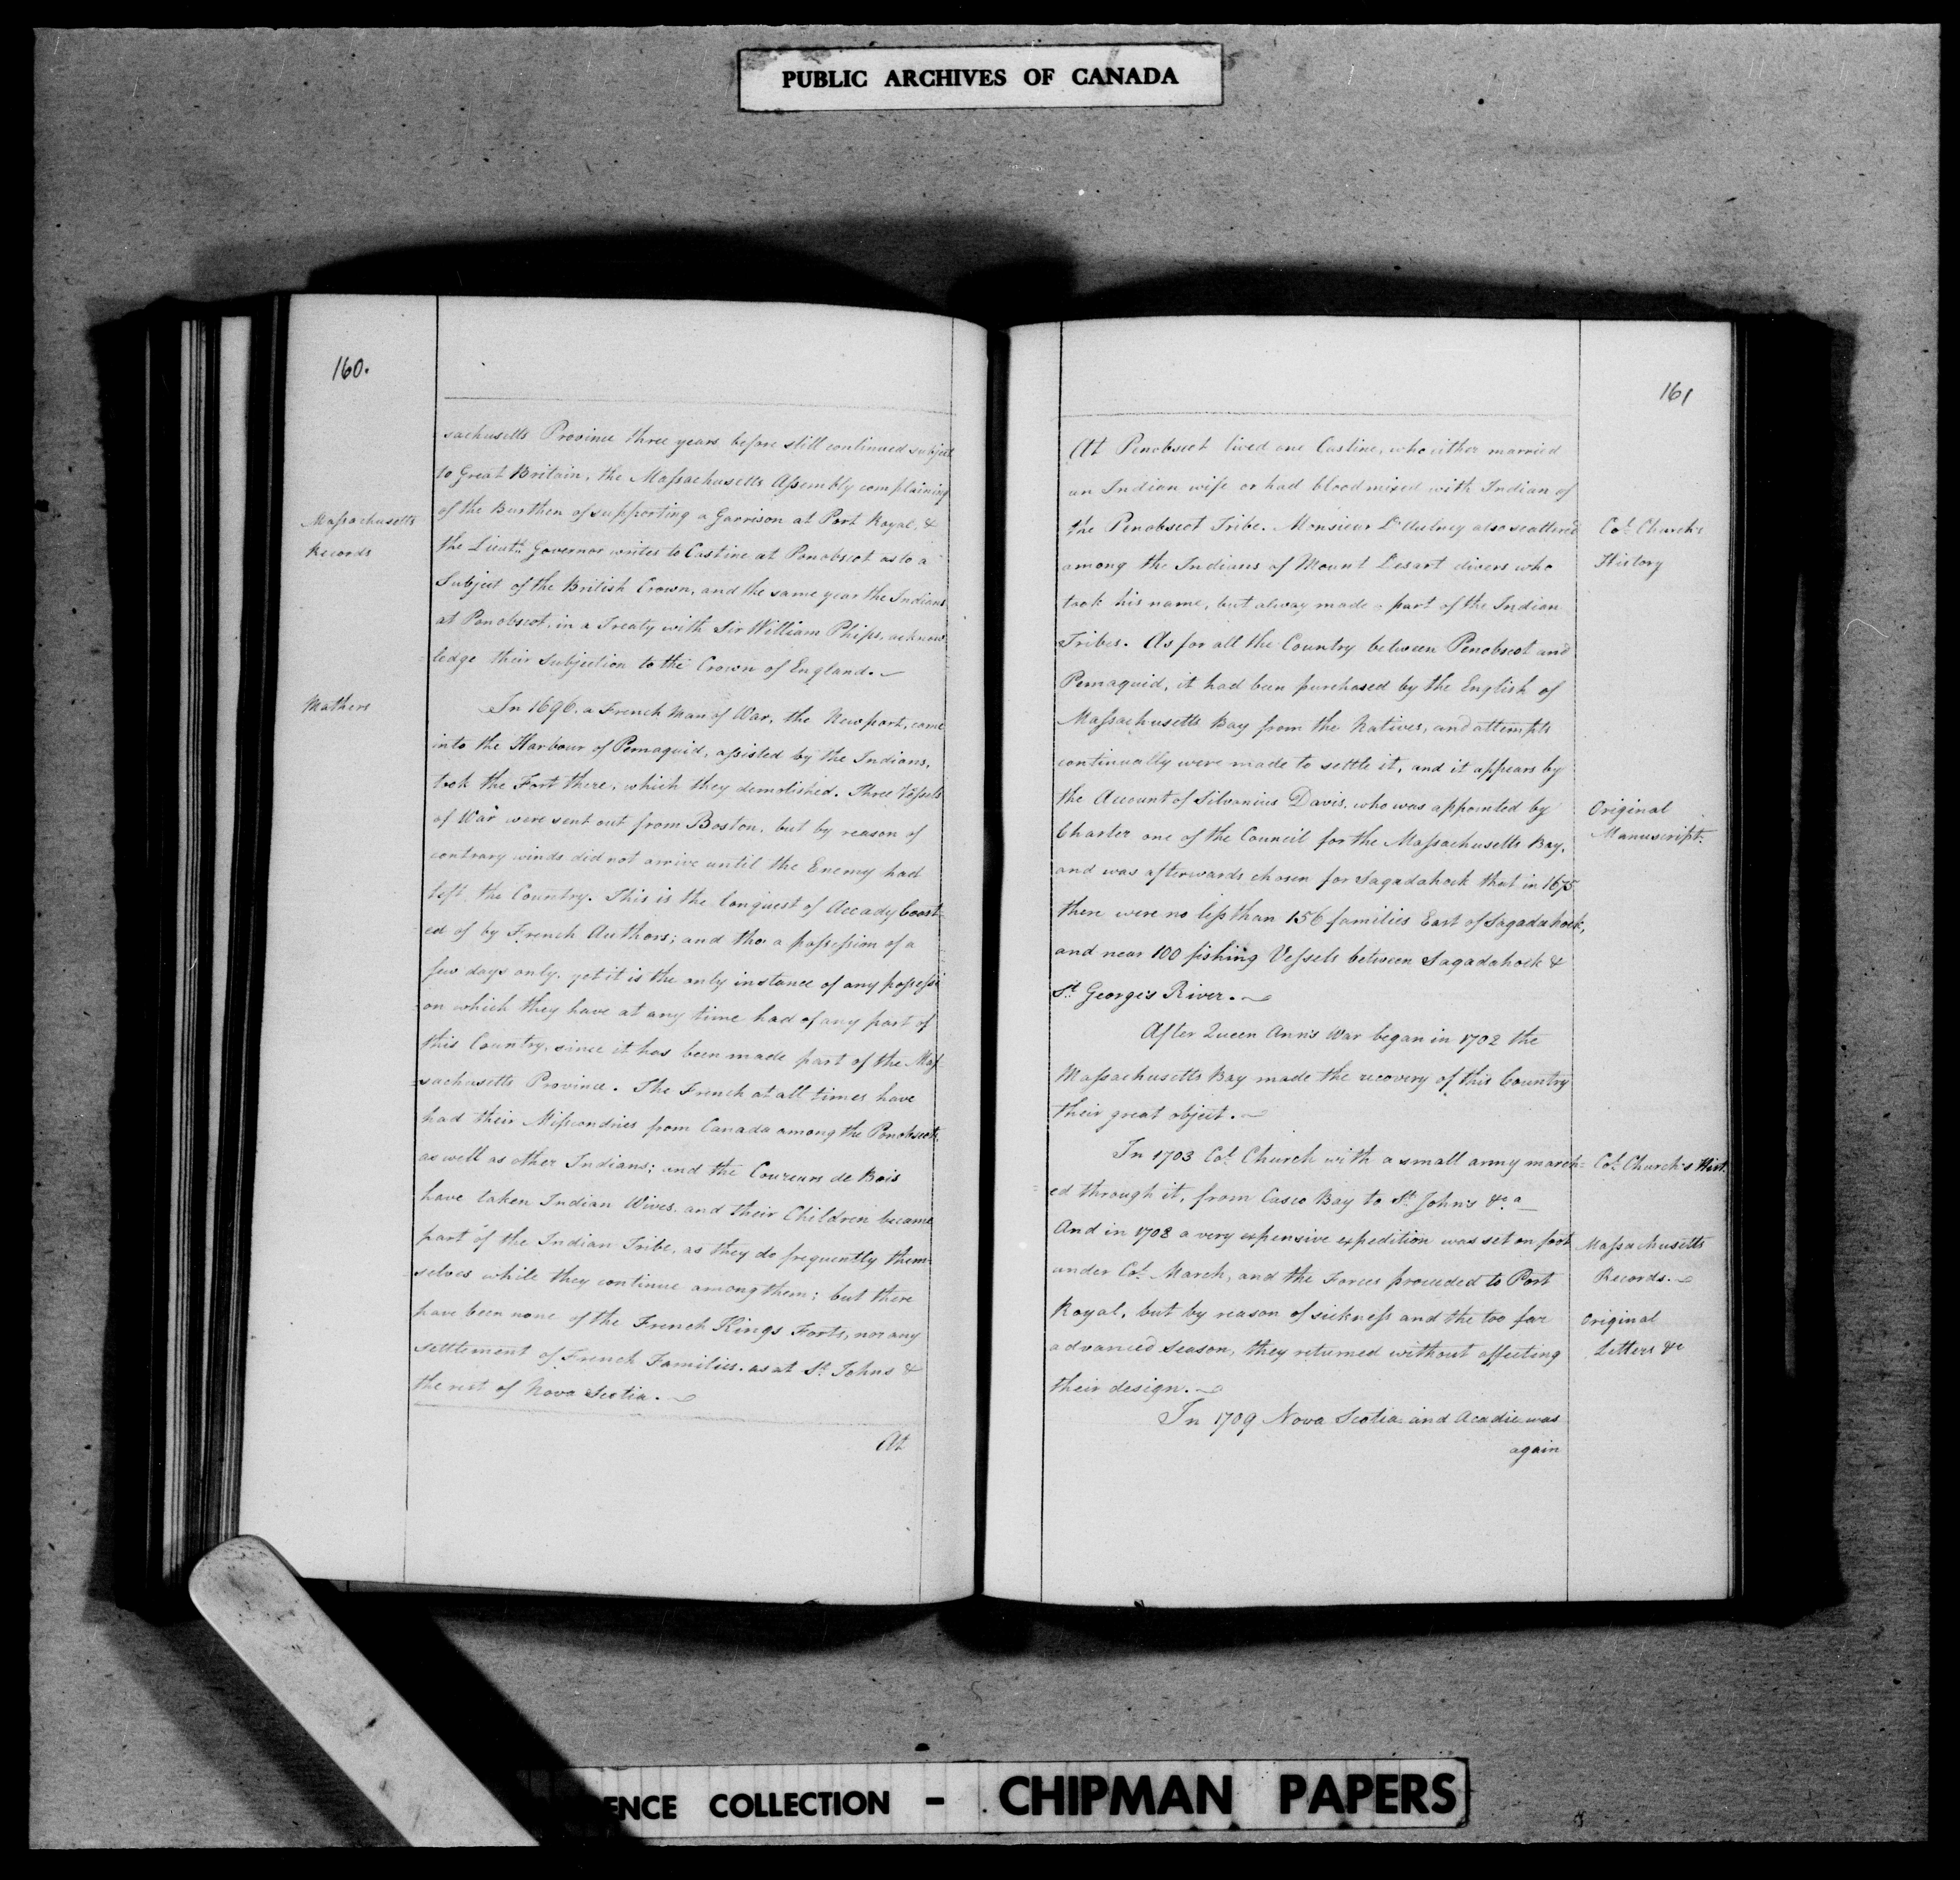 PUBLIC ARCHIVES OF CANADA
160.
sachusetts Province three years before still continued subject
to Great Britain, the Massachusetts Assembly complaining
of the Burthen of supporting a Garrison at Port Royal, &
the Lieut. Governor writes to Castine at Penobscot as to a
Subject of the British Crown, and the same year the Indians
at Penobscot, in a Treaty with Sir William Phips, acknow
ledge their Subjection to the Crown of England.
Massachusetts
Records
In 1696. a French Man of War, the Newport, came
into the Harbour of Pemaquid, assisted by the Indians,
took the Fort there, which they demolished. Three Vessels
of War were sent out from Boston, but by reason of
contrary winds did not arrive until the Enemy had
left the Country. This is the Conquest of Accady boast-
ed of by French Authors; and tho' a possession of a
few days only, yet it is the only instance of any possessi
on which they have at any time had of any part of
this Country, since it has been made part of the Mas
=sachusetts Province. The French at all times have
had their Missionaries from Canada among the Penobscots
as well as other Indians; and the Coureurs de Bois
have taken Indian Wives, and their Children became
part of the Indian Tribe, as they do frequently them
selves while they continue among them; but there
have been none of the French Kings Forts, nor any
settlement of French Families, as at St. Johns &
the rest of Nova Scotia.
Mathers
At
161
At Penobscot lived one Castine, who either married
an Indian wife or had blood mixed with Indian of
the Penobscot Tribe. Monsieur also scattered
among the Indians of Mount Desart divers who
took his name, but alway made a part of the Indian
Tribes. As for all the Country between Penobscot and
Pemaquid, it had been purchased by the English of
Massachusetts Bay from the Natives, and attempts
continually were made to settle it, and it appears by
the Account of Silvanius Davis, who was appointed by
Charter one of the Council for the Massachusetts Bay,
and was afterwards chosen for Sagadahock that in 1675,
there were no less than 156 families East of Sagadahock,
and near 100 fishing Vessels between Sagadahock &
St. George's River.
Col. Church's
History
Original
Manuscript.
After Queen Ann's War began in 1702 the
Massachusetts Bay made the recovery of this Country
their great object.
In 1703 Col. Church with a small army march=
=ed through it, from Casco Bay to St. John's &c.a
And in 1708 a very expensive expedition was set on foot
under Col. March, and the Forces proceeded to Port
Royal, but by reason of sickness and the too far
advanced Season, they returned without affecting
their design.
Col. Church's Hist.
Massachusetts
Records.
Original
Letters &c
In 1709 Nova Scotia and Acadie was
again
ENCE COLLECTION - CHIPMAN PAPERS